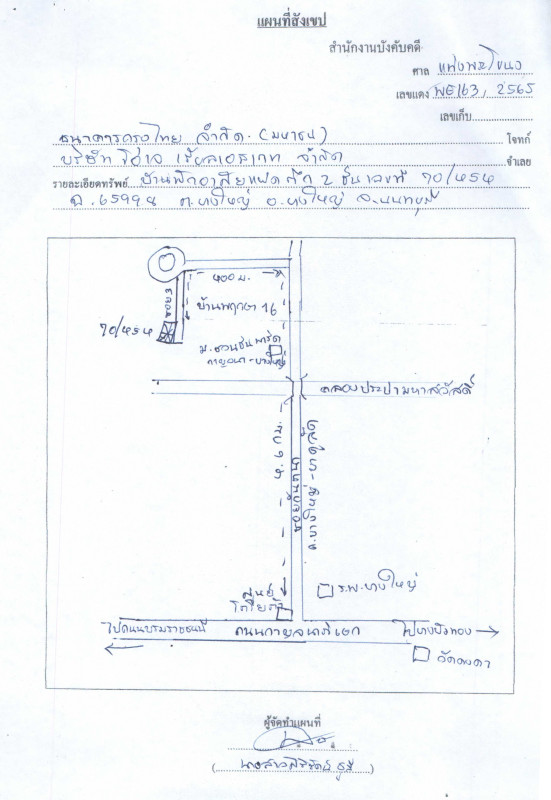 แผนที่สังเขป
สำนักงานบังคับคดี
ศาล แพ่งพระโขนง
เลขแดง ผบE163, 2565
เลขเก็บ
ธนาคารกรุงไทย จำกัด (มหาชน) โจทก์
บริษัท จำกัด จำเลย
รายละเอียดทรัพย์ บ้านพักอาศัยแฝดตึก 2 ชั้น เลขที่ 70/454
ฉ.65998 ต.บางใหญ่ อ.บางใหญ่ จ.นนทบุรี
400 ม.
ซอย 3
บ้านพฤกษา 16
70/454
ม.ชวนชื่นพาร์ค
กาญจนา-บางใหญ่
คลองประปามหาสวัสดิ์
1.6 กม.
ถนนบ้านกล้วย
ศูนย์
โตโยต้า
ร.พ.บางใหญ่
ไปถนนบรมราชชนนี
ถนนกาญจนาภิเษก
ไปบางบัวทอง
วัดคงคา
ผู้จัดทำแผนที่